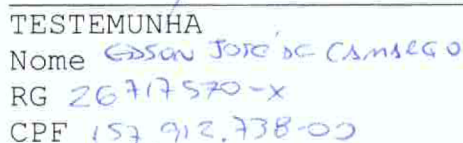 TESTEMUNHA
Nome EDSON JOSÉ DE CAMARGO
RG 26717570-X
CPF 157 912.738-00